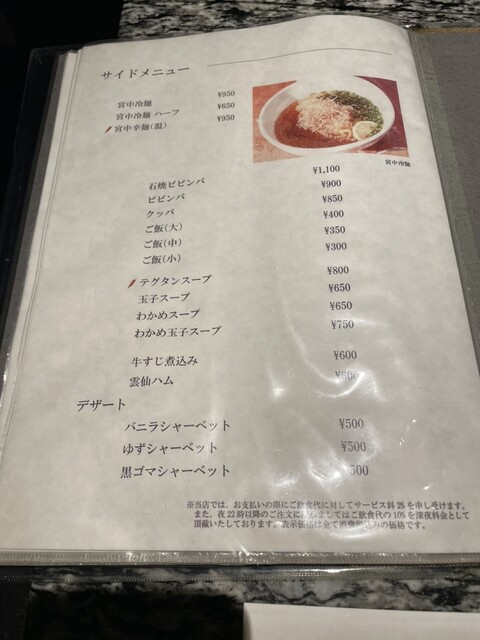 サイドメニュー
宮中冷麺 ¥950
宮中冷麺 ハーフ ¥650
宮中辛麺(温) ¥950
宮中冷麺
石焼ビビンバ ¥1,100
ビビンバ ¥900
クッパ ¥850
ご飯(大) ¥400
ご飯(中) ¥350
ご飯(小) ¥300
テグタンスープ ¥800
玉子スープ ¥650
わかめスープ ¥650
わかめ玉子スープ ¥750
牛すじ煮込み ¥600
雲仙ハム ¥600
デザート
バニラシャーベット ¥500
ゆずシャーベット ¥500
黒ゴマシャーベット 500
※当店では、お支払いの際にご飲食代に対してサービス料2%を申し受けます。
また、夜22時以降のご注文に関しましてはご飲食代の10%を深夜料金として
頂戴いたしております。表示価格は全て消費税込みの価格です。